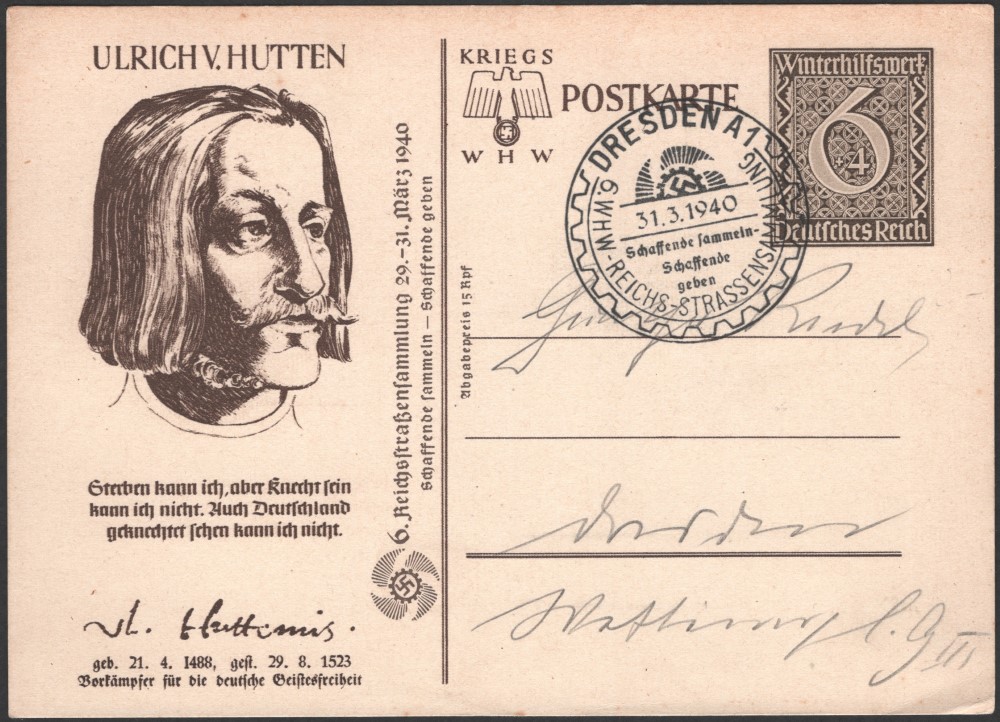 ULRICH V. HUTTEN
Sterben kann ich, aber Knecht sein
kann ich nicht. Auch Deutschland
geknechtet sehen kann ich nicht.
Vl. Huttenus.
geb. 21. 4. 1488, gest. 29. 8. 1523
Vorkämpfer für die deutsche Geistesfreiheit
6. Reichsstraßensammlung 29.–31. März 1940
Schaffende sammeln – Schaffende geben
KRIEGS
WHW
POSTKARTE
Winterhilfswerk
6
+4
Deutsches Reich
DRESDEN A1
31.3.1940
Schaffende sammeln-
Schaffende
geben
REICHS-STRASSENSAMMLUNG
Abgabepreis 15 Rpf
Riedel
Dresden
III